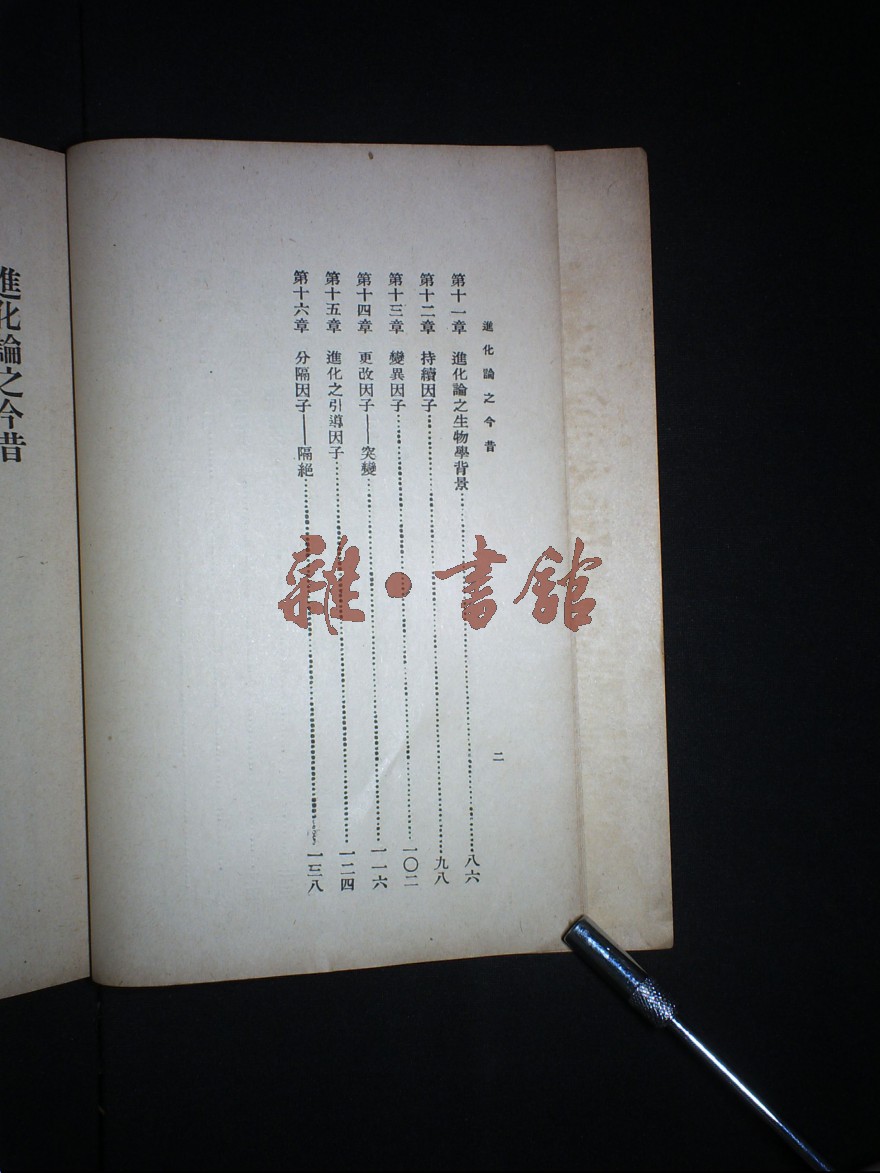 進化論之今昔
二
第十一章 進化論之生物學背景……八六
第十二章 持續因子……九八
第十三章 變異因子……一〇二
第十四章 更改因子——突變……一一六
第十五章 進化之引導因子……一二四
第十六章 分隔因子——隔絕……一三八
進化論之今昔
雜·書館